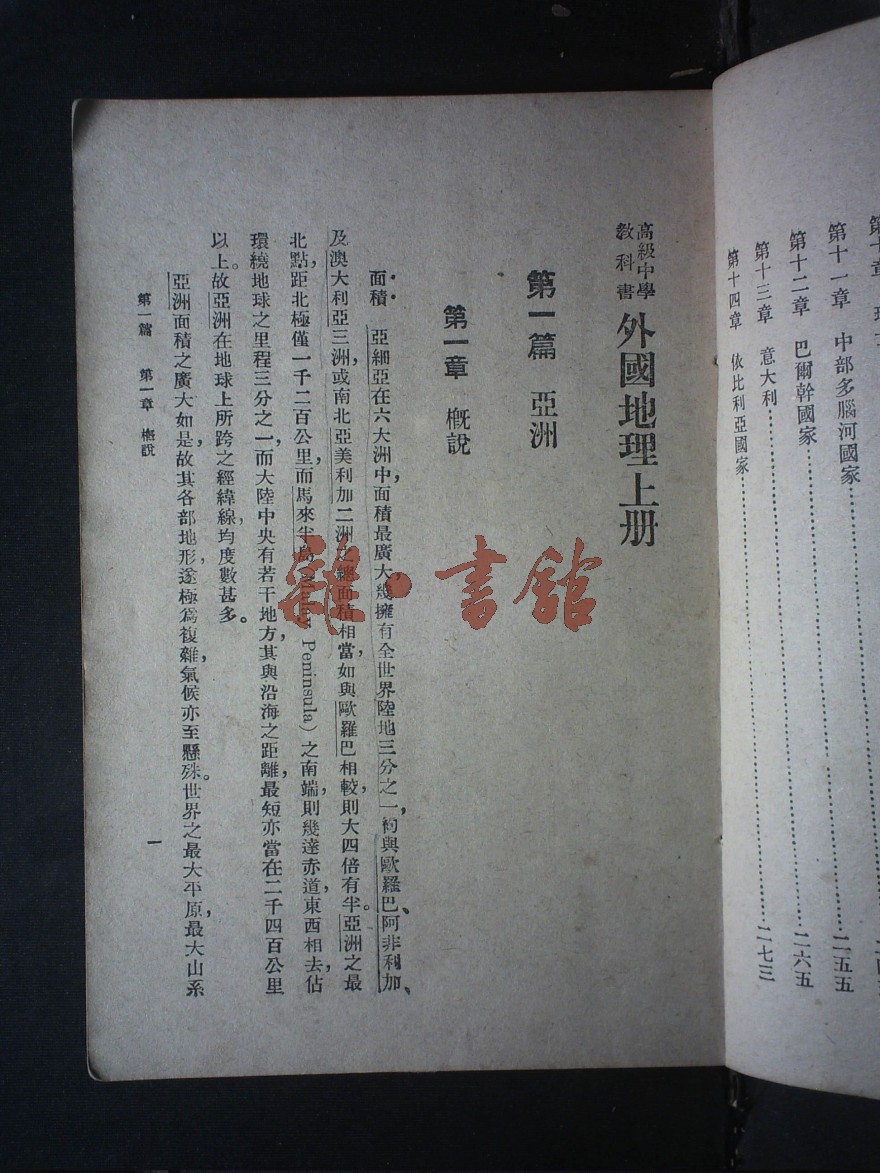 第十章
第十一章 中部多腦河國家……………………二五五
第十二章 巴爾幹國家……………………二六五
第十三章 意大利……………………二七三
第十四章 依比利亞國家……………………
高級中學
教科書
外國地理上册
第一篇 亞洲
第一章 概說
面積 亞細亞在六大洲中,面積最廣大,幾擁有全世界陸地三分之一,約與歐羅巴、阿非利加、
及澳大利亞三洲,或南北亞美利加二洲之總面積相當,如與歐羅巴相較,則大四倍有半。亞洲之最
北點,距北極僅一千二百公里,而馬來半島(Malay Peninsula)之南端,則幾達赤道,東西相去,佔
環繞地球之里程三分之一,而大陸中央有若干地方,其與沿海之距離,最短亦當在二千四百公里
以上。故亞洲在地球上所跨之經緯線,均度數甚多。
亞洲面積之廣大如是,故其各部地形,遂極爲複雜,氣候亦至懸殊。世界之最大平原,最大山系
第一篇 第一章 概說
一
雜·書館